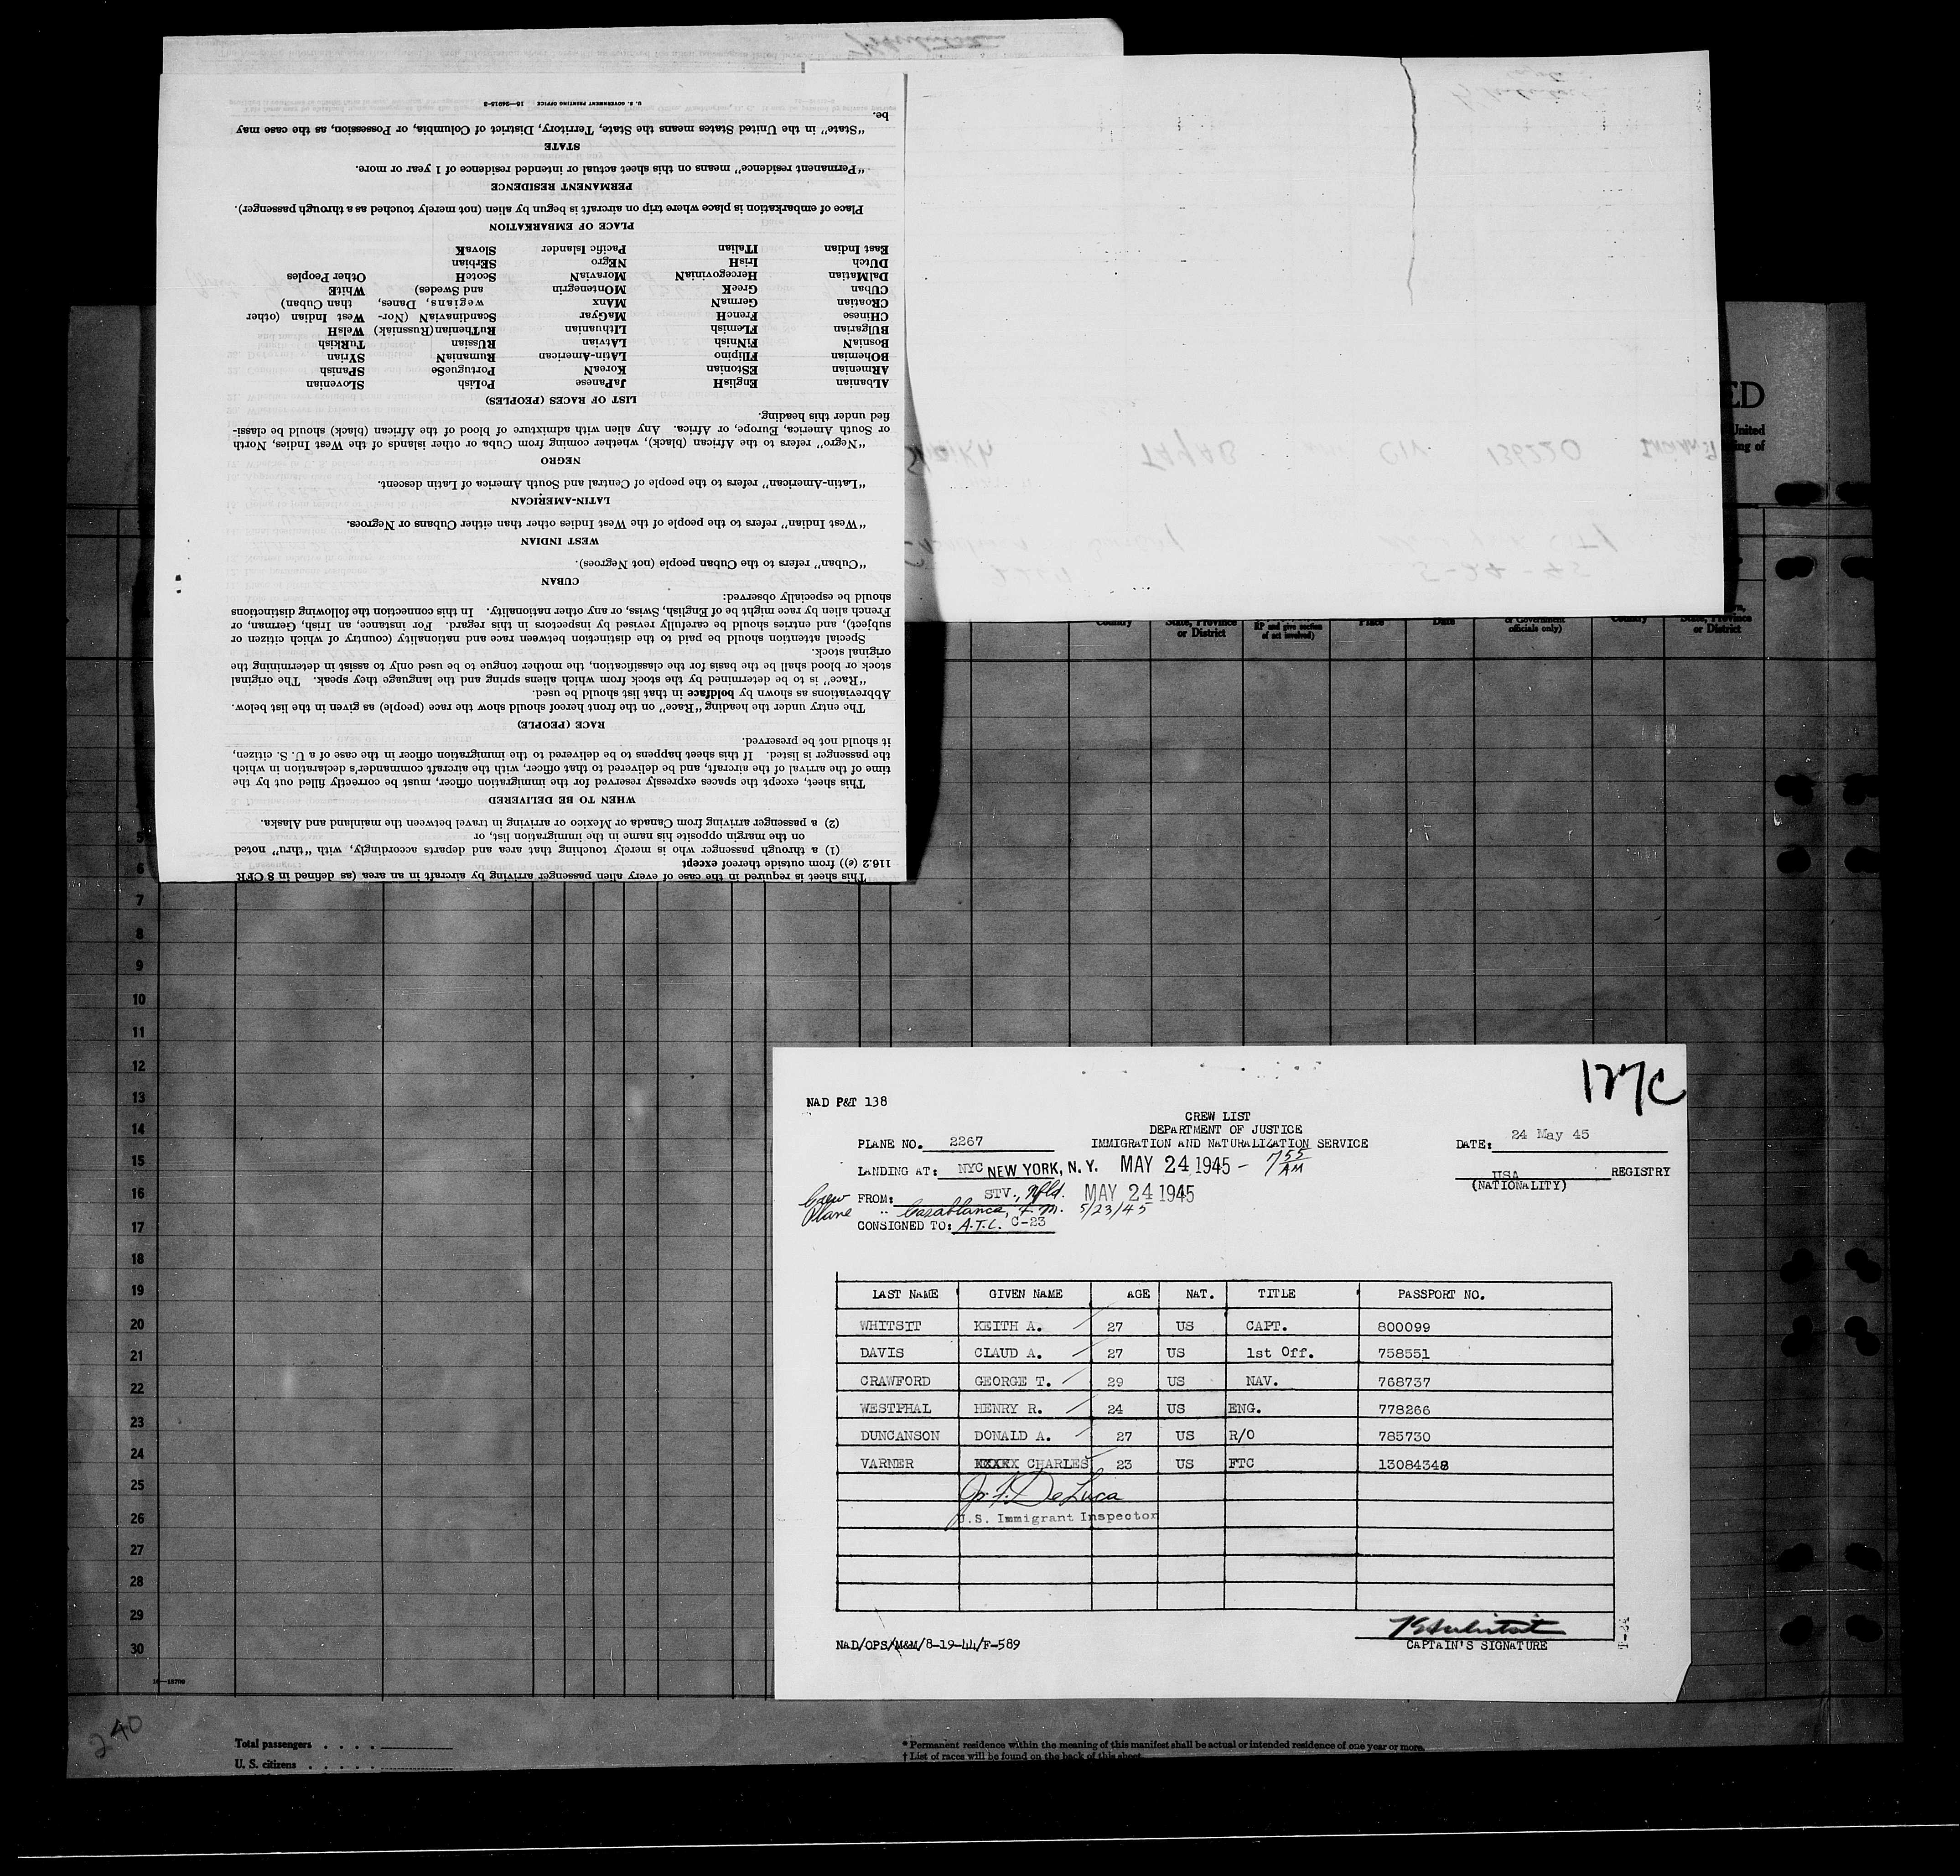 This sheet is required in the case of every alien passenger arriving by aircraft in an area (as defined in 8 CFR
116.2 (e)) from outside thereof except
(1) a through passenger who is merely touching that area and departs accordingly, with "thru" noted
on the margin opposite his name in the immigration list, or
(2) a passenger arriving from Canada or Mexico or arriving in travel between the mainland and Alaska.
WHEN TO BE DELIVERED
This sheet, except the spaces expressly reserved for the immigration officer, must be correctly filled out by the
time of the arrival of the aircraft, and be delivered to that officer, with the aircraft commander's declaration in which
the passenger is listed. If this sheet happens to be delivered to the immigration officer in the case of a U. S. citizen,
it should not be preserved.
RACE (PEOPLE)
The entry under the heading "Race" on the front hereof should show the race (people) as given in the list below.
Abbreviations as shown by boldface in that list should be used.
"Race" is to be determined by the stock from which aliens spring and the language they speak. The original
stock or blood shall be the basis for the classification, the mother tongue to be used only to assist in determining the
original stock.
Special attention should be paid to the distinction between race and nationality (country of which citizen or
subject), and entries should be carefully revised by inspectors in this regard. For instance, an Irish, German, or
French alien by race might be of English, Swiss, or any other nationality. In this connection the following distinctions
should be especially observed:
CUBAN
"Cuban" refers to the Cuban people (not Negroes).
WEST INDIAN
"West Indian" refers to the people of the West Indies other than either Cubans or Negroes.
LATIN-AMERICAN
"Latin-American" refers to the people of Central and South America of Latin descent.
NEGRO
"Negro" refers to the African (black), whether coming from Cuba or other islands of the West Indies, North
or South America, Europe, or Africa. Any alien with admixture of blood of the African (black) should be classi-
fied under this heading.
LIST OF RACES (PEOPLES)
ALbanian EnglisH JaPanese PoLish SLOvenian
ARMenian EStonian KoreaN PortugueSe SPanish
BOHemian FIlipino LAtin-American RumaniaN SYrian
BosniaN FiNnish LAtvian RUssian TuRkish
BUlgarian FLemish LIthuanian RuThenian (Russniak) WelsH
CHinese FrencH MaGyar ScandinaviaN (Nor- West Indian (other
CRoatian GermaN MAnx wegians, Danes, than Cuban)
CUban GreeK MOntenegrin and Swedes) WhitE
DalMatian HercegoviniaN MoraviaN ScotcH Other Peoples
DUtch IrisH NEgro SErbian
East Indian ITalian Pacific Islander SlovaK
PLACE OF EMBARKATION
Place of embarkation is place where trip on aircraft is begun by alien (not merely touched as a through passenger).
PERMANENT RESIDENCE
"Permanent residence" means on this sheet actual or intended residence of 1 year or more.
STATE
"State" in the United States means the State, Territory, District of Columbia, or Possession, as the case may
be.
U. S. GOVERNMENT PRINTING OFFICE 16—24915-3
ED
United
ing of
Country State, Province or District RP and give section of act involved) Place Date or Government officials only) Country State, Province or District
5
6
7
8
9
10
11
12
13
14
15
16
17
18
19
20
21
22
23
24
25
26
27
28
29
30
127C
NAD P&T 138
CREW LIST
DEPARTMENT OF JUSTICE
PLANE NO. 2267 IMMIGRATION AND NATURALIZATION SERVICE DATE: 24 May 45
LANDING AT: NYC NEW YORK, N. Y. MAY 24 1945 - 755 AM USA REGISTRY
(NATIONALITY)
Crew FROM: STV., Nfld. MAY 24 1945
Plane " Casablanca, F.M. 5/23/45
CONSIGNED TO: A.T.C. C-23
LAST NAME GIVEN NAME AGE NAT. TITLE PASSPORT NO.
WHITSIT KEITH A. 27 US CAPT. 800099
DAVIS CLAUD A. 27 US 1st Off. 758551
CRAWFORD GEORGE T. 29 US NAV. 768737
WESTPHAL HENRY R. 24 US ENG. 778266
DUNCANSON DONALD A. 27 US R/O 785730
VARNER XXXXX CHARLES 23 US FTC 13084348
De Luca
U.S. Immigrant Inspector
NAD/OPS/M&M/8-19-44/F-589
CAPTAIN'S SIGNATURE
16—18700
240
Total passengers . . . .
U. S. citizens . . . . .
* Permanent residence within the meaning of this manifest shall be actual or intended residence of one year or more.
† List of races will be found on the back of this sheet.